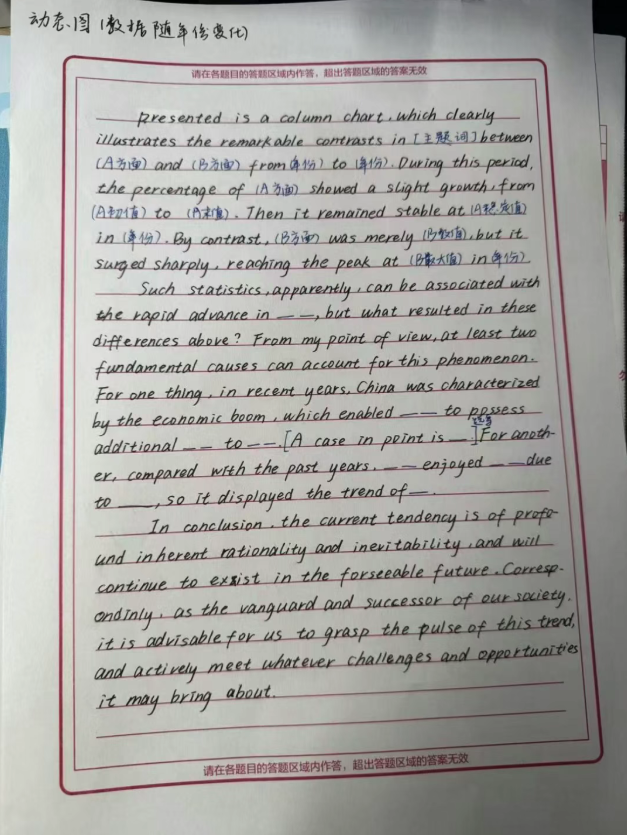 动态图(数据随年份变化)
请在各题目的答题区域内作答，超出答题区域的答案无效
Presented is a column chart, which clearly
illustrates the remarkable contrasts in [主题词] between
(A方面) and (B方面) from (年份) to (年份). During this period,
the percentage of (A方面) showed a slight growth, from
(A初值) to (A末值). Then it remained stable at (A稳定值)
in (年份). By contrast, (B方面) was merely (B数值), but it
surged sharply, reaching the peak at (B最大值) in (年份).
Such statistics, apparently, can be associated with
the rapid advance in — —, but what resulted in these
differences above? From my point of view, at least two
fundamental causes can account for this phenomenon.
For one thing, in recent years, China was characterized
by the economic boom, which enabled — — to possess
additional — — to — —. [A case in point is — .] For anoth-
er, compared with the past years, — — enjoyed — — due
to —, so it displayed the trend of —.
In conclusion, the current tendency is of profo-
und inherent rationality and inevitability, and will
continue to exsist in the forseeable future. Corresp-
ondinly, as the vanguard and successor of our society,
it is advisable for us to grasp the pulse of this trend,
and actively meet whatever challenges and opportunities
it may bring about.
请在各题目的答题区域内作答，超出答题区域的答案无效